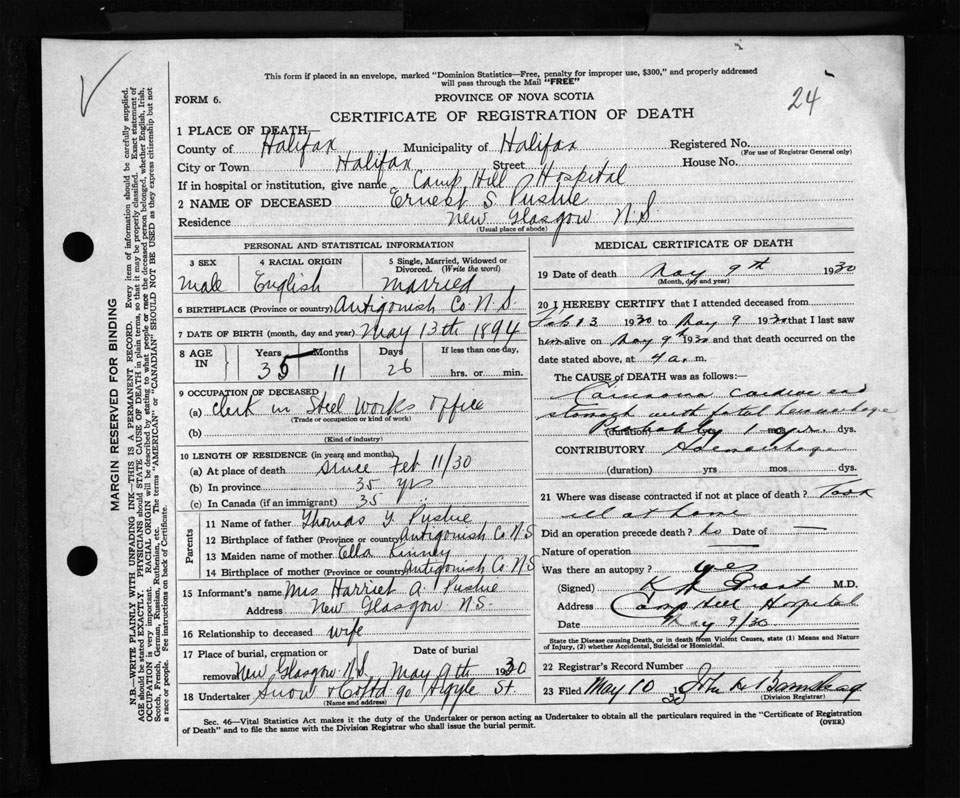 This form if placed in an envelope, marked "Dominion Statistics—Free, penalty for improper use, $300," and properly addressed
will pass through the Mail "FREE"
FORM 6.
PROVINCE OF NOVA SCOTIA
24
CERTIFICATE OF REGISTRATION OF DEATH
1 PLACE OF DEATH
County of Halifax Municipality of Halifax Registered No.
(For use of Registrar General only)
City or Town Halifax Street House No.
If in hospital or institution, give name Camp Hill Hospital
2 NAME OF DECEASED Ernest S. Pushie
Residence New Glasgow N.S.
(Usual place of abode)
PERSONAL AND STATISTICAL INFORMATION
3 SEX 4 RACIAL ORIGIN 5 Single, Married, Widowed or
Divorced. (Write the word)
Male English Married
6 BIRTHPLACE (Province or country) Antigonish Co. N.S.
7 DATE OF BIRTH (month, day and year) May 13th 1894
8 AGE IN Years Months Days If less than one day,
35 11 26 hrs. or min.
9 OCCUPATION OF DECEASED
(a) Clerk in Steel Works Office
(Trade or occupation or kind of work)
(b)
(Kind of industry)
10 LENGTH OF RESIDENCE (in years and months)
(a) At place of death since Feb 11/30
(b) In province 35 yrs
(c) In Canada (if an immigrant) 35
Parents
11 Name of father Thomas Y. Pushie
12 Birthplace of father (Province or country) Antigonish Co N.S
13 Maiden name of mother Ella Kinney
14 Birthplace of mother (Province or country) Antigonish Co. N/S
15 Informant's name Mrs Harriet A. Pushie
Address New Glasgow N.S.
16 Relationship to deceased wife
17 Place of burial, cremation or Date of burial
removal New Glasgow N.S. May 9th 1930
18 Undertaker Snow & Co Ltd 90 Argyle St
(Name and address)
MEDICAL CERTIFICATE OF DEATH
19 Date of death May 9th 1930
(Month, day and year)
20 I HEREBY CERTIFY that I attended deceased from
Feb 13 1930 to May 9 1930 that I last saw
him alive on May 9th 1930 and that death occurred on the
date stated above, at 4 a. m.
The CAUSE of DEATH was as follows:—
Carcinoma Cardiac end
stomach with fatal hemorrhage
Probably 1 yr.
(duration) yrs mos. dys.
CONTRIBUTORY Haemorrhage
(duration) yrs mos. dys.
21 Where was disease contracted if not at place of death? Took
ill at home
Did an operation precede death? no Date of
Nature of operation
Was there an autopsy? yes
(Signed) Grant M.D.
Address Camp Hill Hospital
Date May 9/30
State the Disease causing Death, or in death from Violent Causes, state (1) Means and Nature
of Injury, (2) whether Accidental, Suicidal or Homicidal.
22 Registrar's Record Number
23 Filed May 10 1930 John
(Division Registrar)
Sec. 46—Vital Statistics Act makes it the duty of the Undertaker or person acting as Undertaker to obtain all the particulars required in the "Certificate of Registration
of Death" and to file the same with the Division Registrar who shall issue the burial permit.
(OVER)
MARGIN RESERVED FOR BINDING
N.B.—WRITE PLAINLY WITH UNFADING INK—THIS IS A PERMANENT RECORD. Every item of information should be carefully supplied.
AGE should be stated EXACTLY. PHYSICIANS should STATE CAUSE OF DEATH in plain terms, so that it may be properly classified. Exact statement of
OCCUPATION is very important. RACIAL ORIGIN will be described by stating to what people or race the deceased person belonged, whether English, Irish,
Scotch, French, German, Russian, Ruthenian, etc. The terms "AMERICAN" or "CANADIAN" SHOULD NOT BE USED as they express citizenship but not
a race or people. See instructions on back of Certificate.